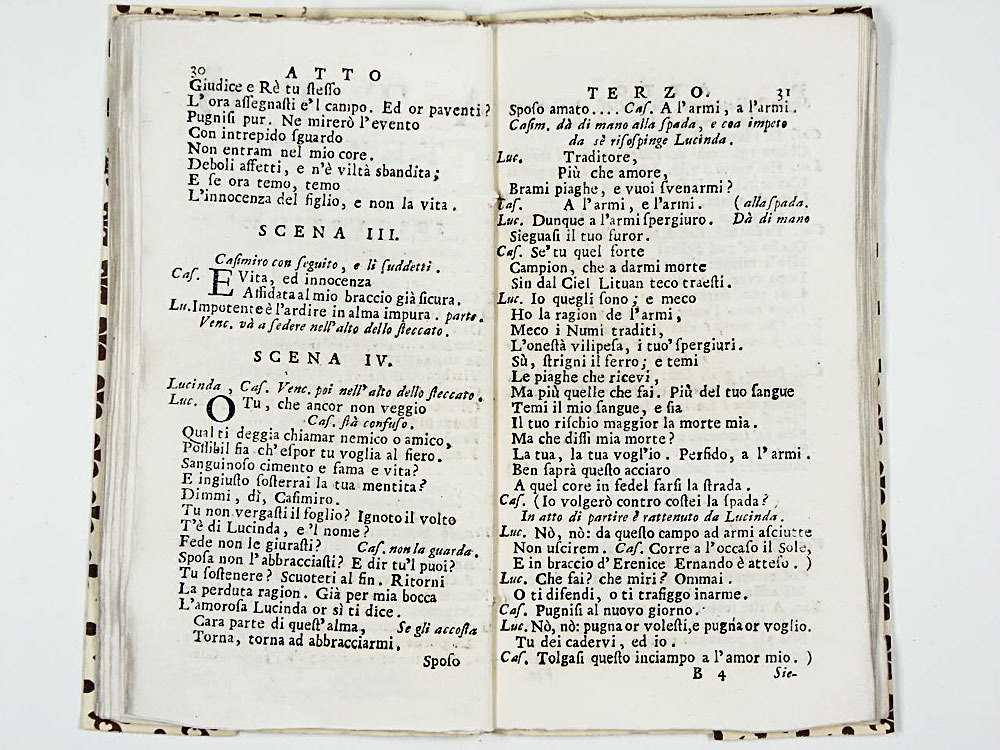 30
ATTO
Giudice e Rè tu ſteſſo
L'ora aſſegnaſti e'l campo. Ed or paventi?
Pugniſi pur. Ne mirerò l'evento
Con intrepido ſguardo
Non entram nel mio core.
Deboli affetti, e n'è viltà sbandita;
E ſe ora temo, temo
L'innocenza del figlio, e non la vita.
SCENA III.
Caſimiro con ſeguito, e li ſuddetti.
Caſ. E Vita, ed innocenza
Affidata al mio braccio già ſicura.
Lu. Impotente è l'ardire in alma impura. parte.
Venc. và a ſedere nell'alto dello ſteccato.
SCENA IV.
Lucinda, Caſ. Venc. poi nell'alto dello ſteccato.
Luc. O Tu, che ancor non veggio
Caſ. ſtà confuſo.
Qual ti deggia chiamar nemico o amico,
Poſſibil fia ch'eſpor tu voglia al fiero.
Sanguinoſo cimento e fama e vita?
E ingiuſto ſoſterrai la tua mentita?
Dimmi, dì, Caſimiro.
Tu non vergaſti il foglio? Ignoto il volto
T'è di Lucinda, e'l nome?
Fede non le giuraſti? Caſ. non la guarda.
Spoſa non l'abbracciaſti? E dir tu'l puoi?
Tu ſoſtenere? Scuoteti al fin. Ritorni
La perduta ragion. Già per mia bocca
L'amoroſa Lucinda or sì ti dice.
Cara parte di queſt'alma, Se gli accoſta
Torna, torna ad abbracciarmi.
Spoſo
TERZO.
31
Spoſo amato.... Caſ. A l'armi, a l'armi.
Caſim. dà di mano alla ſpada, e coa impeto
da sè riſoſpinge Lucinda.
Luc. Traditore,
Più che amore,
Brami piaghe, e vuoi ſvenarmi?
Caſ. A l'armi, e l'armi. (alla ſpada.
Luc. Dunque a l'armi ſpergiuro. Dà di mano
Sieguaſi il tuo furor.
Caſ. Se' tu quel forte
Campion, che a darmi morte
Sin dal Ciel Lituan teco traeſti.
Luc. Io quegli ſono; e meco
Ho la ragion de l'armi,
Meco i Numi traditi,
L'oneſtà vilipeſa, i tuo' ſpergiuri.
Sù, ſtrigni il ferro; e temi
Le piaghe che ricevi,
Ma più quelle che fai. Più del tuo sangue
Temi il mio ſangue, e ſia
Il tuo riſchio maggior la morte mia.
Ma che diſſi mia morte?
La tua, la tua vogl'io. Perfido, a l'armi.
Ben ſaprà queſto acciaro
A quel core in fedel farſi la ſtrada.
Caſ. (Io volgerò contro coſtei la ſpada?
In atto di partire è rattenuto da Lucinda.
Luc. Nò, nò: da queſto campo ad armi aſciutte
Non uſcirem. Caſ. Corre a l'occaſo il Sole,
E in braccio d'Erenice Ernando è atteſo.)
Luc. Che fai? che miri? Ommai.
O ti difendi, o ti trafiggo inarme.
Caſ. Pugniſi al nuovo giorno.
Luc. Nò, nò: pugna or voleſti, e pugna or voglio.
Tu dei cadervi, ed io.
Caſ. Tolgaſi queſto inciampo a l'amor mio.)
B 4
Sie-